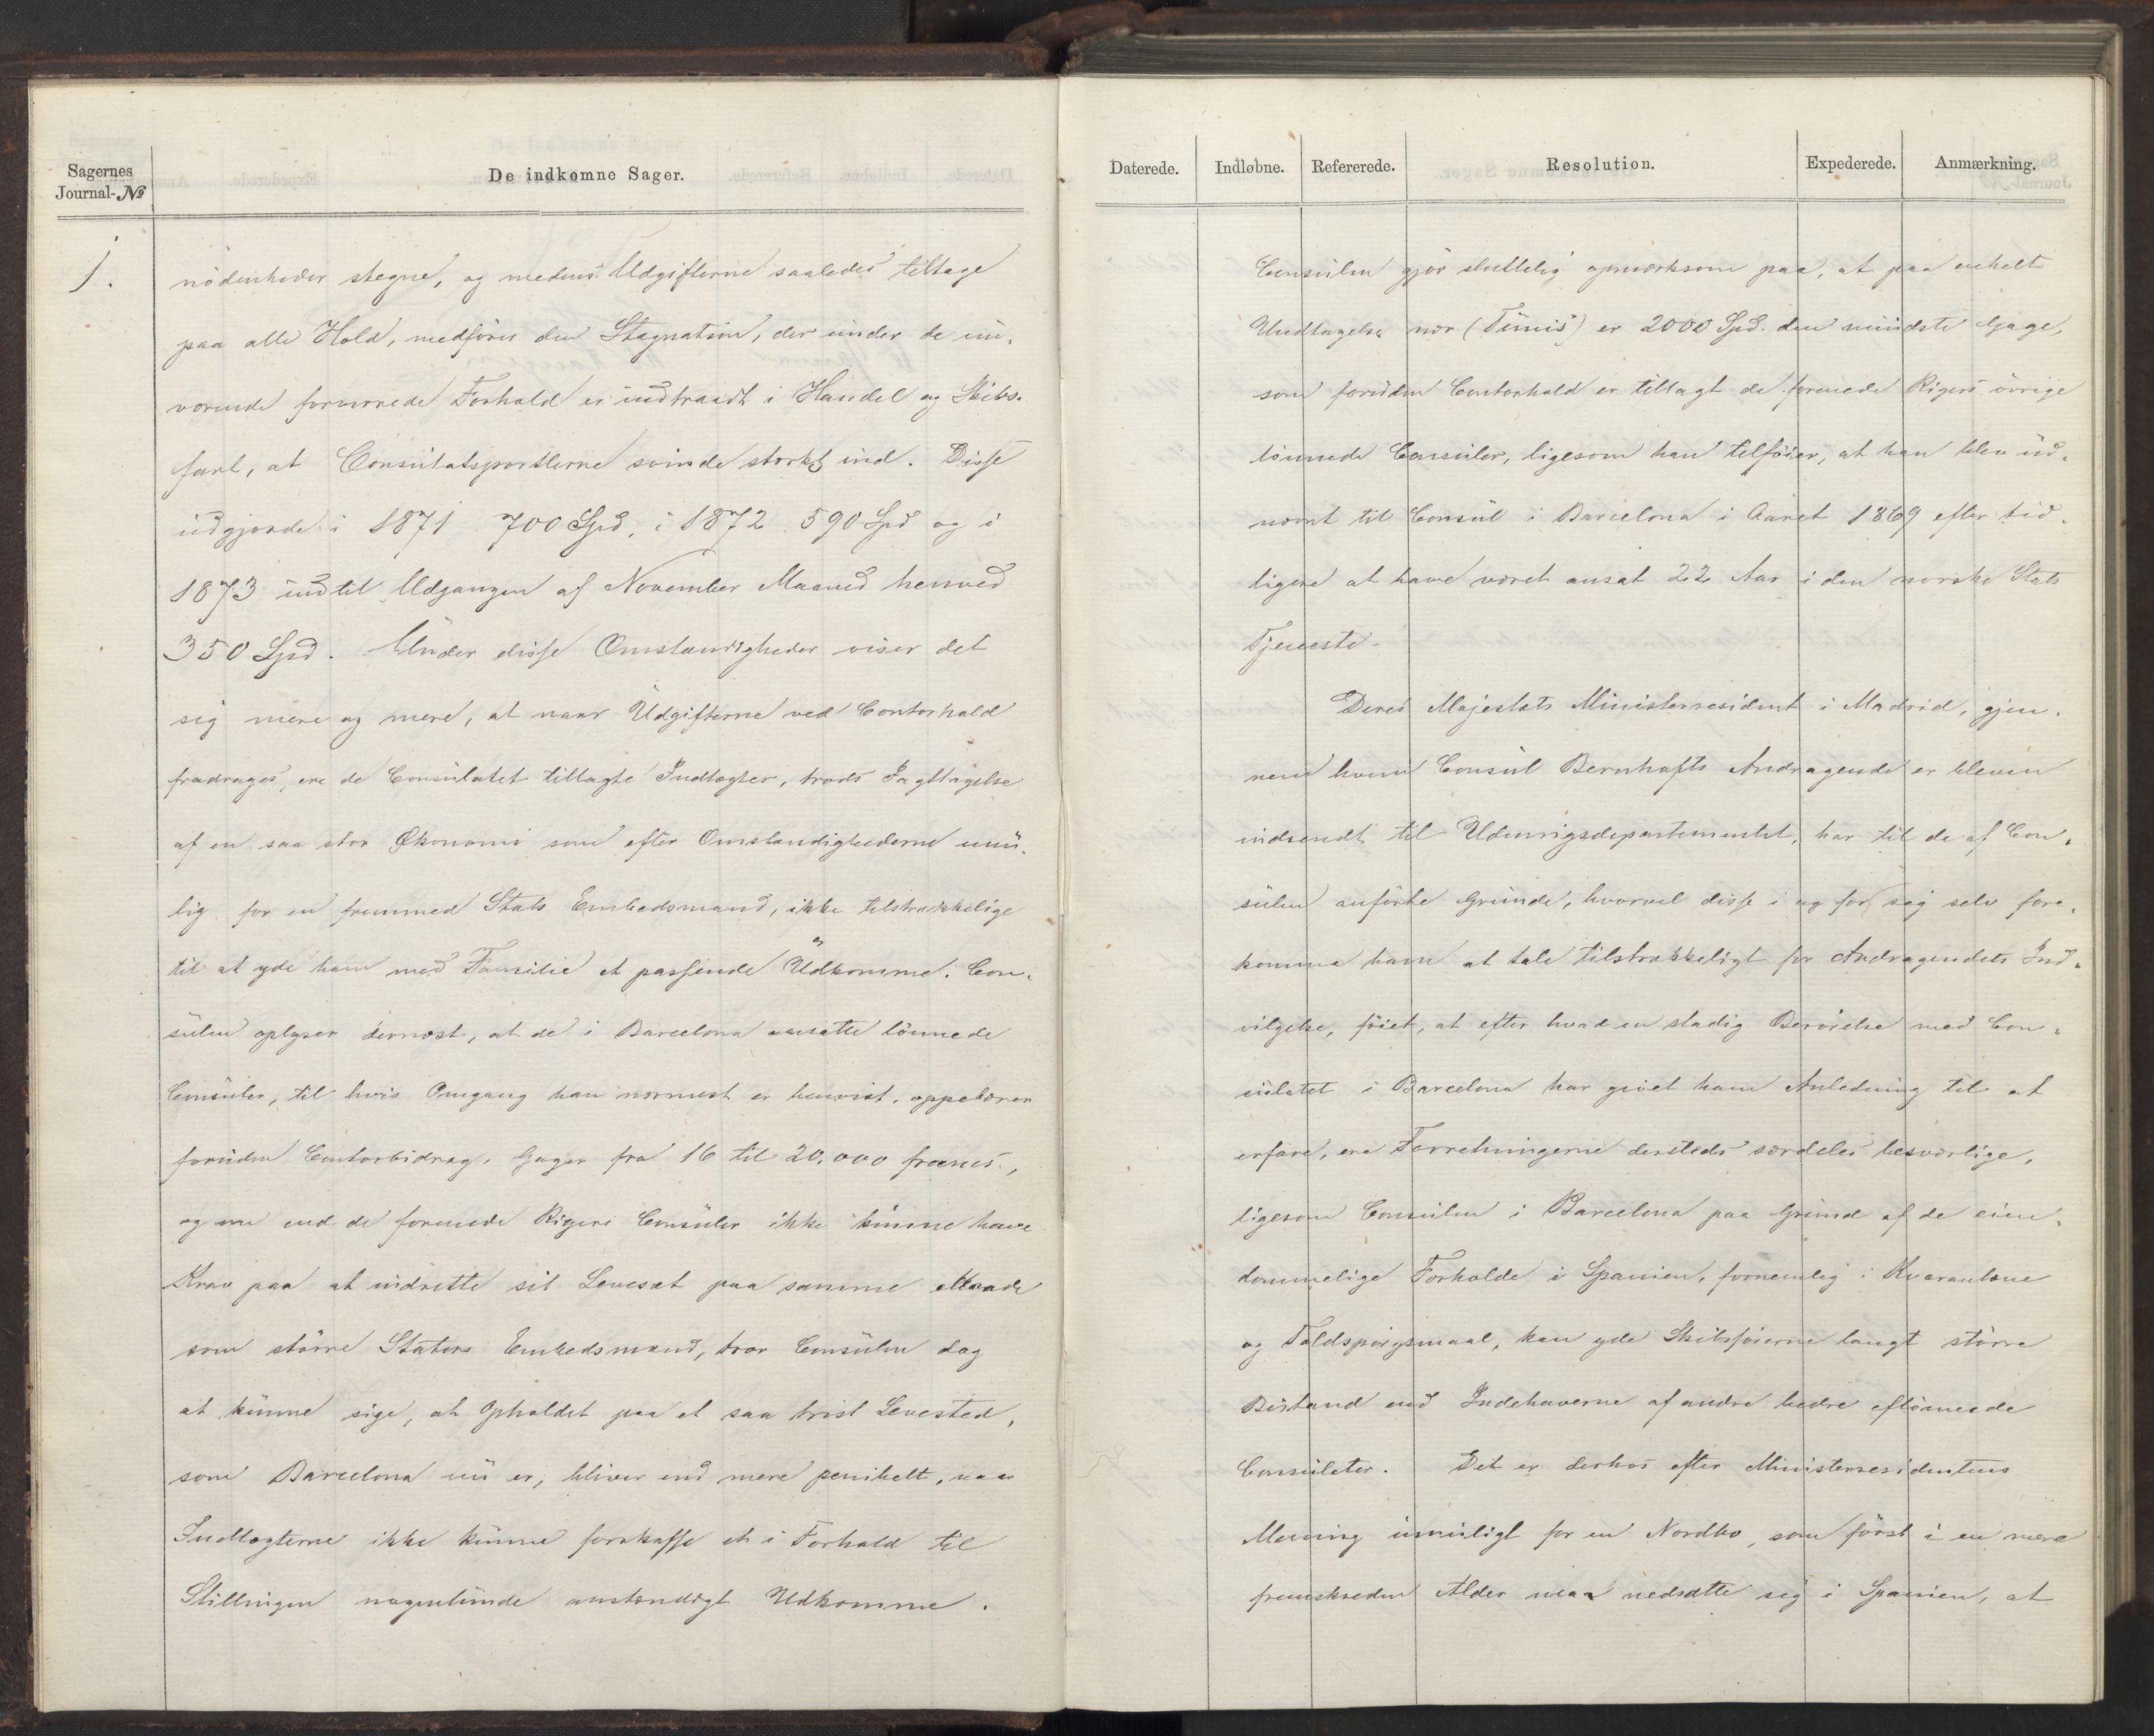 Sagernes
Journal-№
De indkomne Sager.
1.
nödenheder stegne, og medens Udgifterne saaledes tiltage
paa alle Hold, medförer den Stagnation, der under de nu-
værende forvirrede Forhold er indtraadt i Handel og Skibs-
fart, at Consulatsportlerne svinde stærkt ind. Disse
udgjorde i 1871 700 Spd, i 1872 590 Spd og i
1873 indtil Udgangen af November Maaned henved
350 Spd. Under disse Omstændigheder viser det
sig mere og mere, at naar Udgifterne ved Contorhold
fradrages, ere de Consulatet tillagte Indtægter, trods Iagttagelse
af en saa stor Økonomi som efter Omstændighederne mu-
lig for en fremmed Stats Embedsmand, ikke tilstrækkelige
til at yde ham med Familie et passende Udkomme. Con-
sulen oplyser dernæst, at de i Barcelona ansatte lönnede
Consuler, til hvis Omgang han nærmest er henvist, oppebærer
foruden Contorbidrag, Gager fra 16 til 20,000 francs,
og om end de forenede Rigers Consuler ikke kunne have
Krav paa at indrette sit Levesæt paa samme Maade
som större Staters Embedsmænd, tror Consulen dog
at kunne sige, at Opholdet paa et saa trist Levested,
som Barcelona nu er, bliver end mere penibelt, naar
Indtægterne ikke kunne forskaffe et i Forhold til
Stillingen nogenlunde anstændigt Udkomme.
Daterede. Indløbne. Refererede. Resolution. Expederede. Anmærkning.
Consulen gjör sluttelig opmærksom paa, at paa enkelt
Undtagelse nær (Tunis) er 2000 Spd. den mindste Gage,
som foruden Contorhold er tillagt de forenede Rigers övrige
lönnede Consuler, ligesom han tilföier, at han blev ud-
nævnt til Consul i Barcelona i Aaret 1869 efter tid-
ligere at have været ansat 22 Aar i den norske Stats
Tjeneste.
Deres Majestæts Ministerresident i Madrid, gjen-
nem hvem Consul Bernhofts Andragende er bleven
indsendt til Udenrigsdepartementet, har til de af Con-
sulen anförte Grunde, hvorvel disse i og for sig selv fore-
komme ham at tale tilstrækkeligt for Andragendets Ind-
vilgelse, föiet, at efter hvad en stadig Beröielse med Con-
sulatet i Barcelona har givet ham Anledning til at
erfare, ere Forretningerne dersteds særdeles besværlige,
ligesom Consulen i Barcelona paa Grund af de eien-
dommelige Forholde i Spanien, fornemlig i Kvarantæne
og Toldspörgsmaal, kan yde Skibsförerne langt större
Bistand end Indehaverne af andre bedre aflönnede
Consulater. Det er derhos efter Ministerresidentens
Mening umuligt for en Nordbo, som först i en mere
fremskreden Alder maa nedsætte sig i Spanien, at